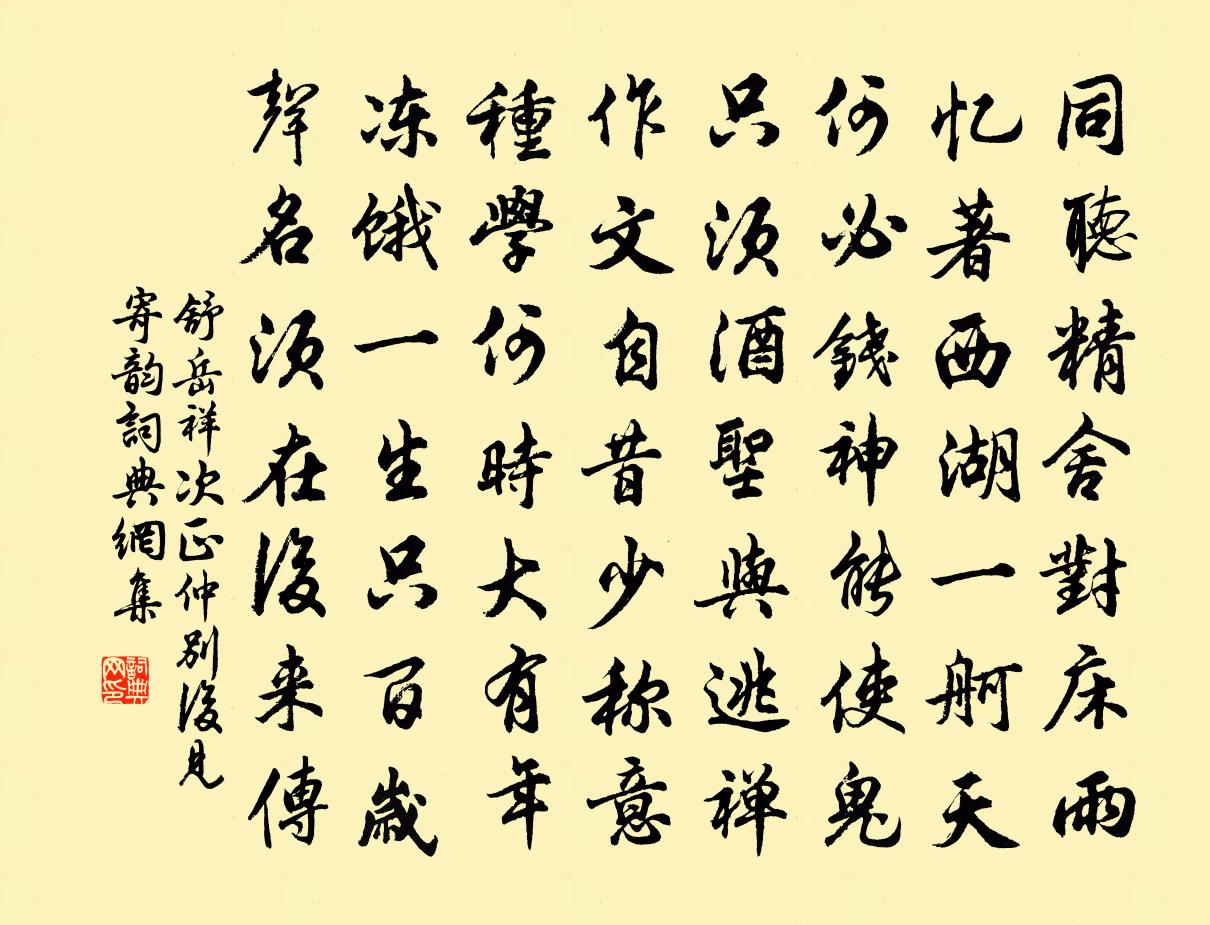 同聽精舍對床雨
忆著西湖一舸天
何必錢神能使鬼
只须酒聖與逃禅
作文自昔少称意
種學何時大有年
冻饿一生只百歲
聲名须在後来傳
舒岳祥次正仲别後見
寄韵詞典網集
詞典
网印